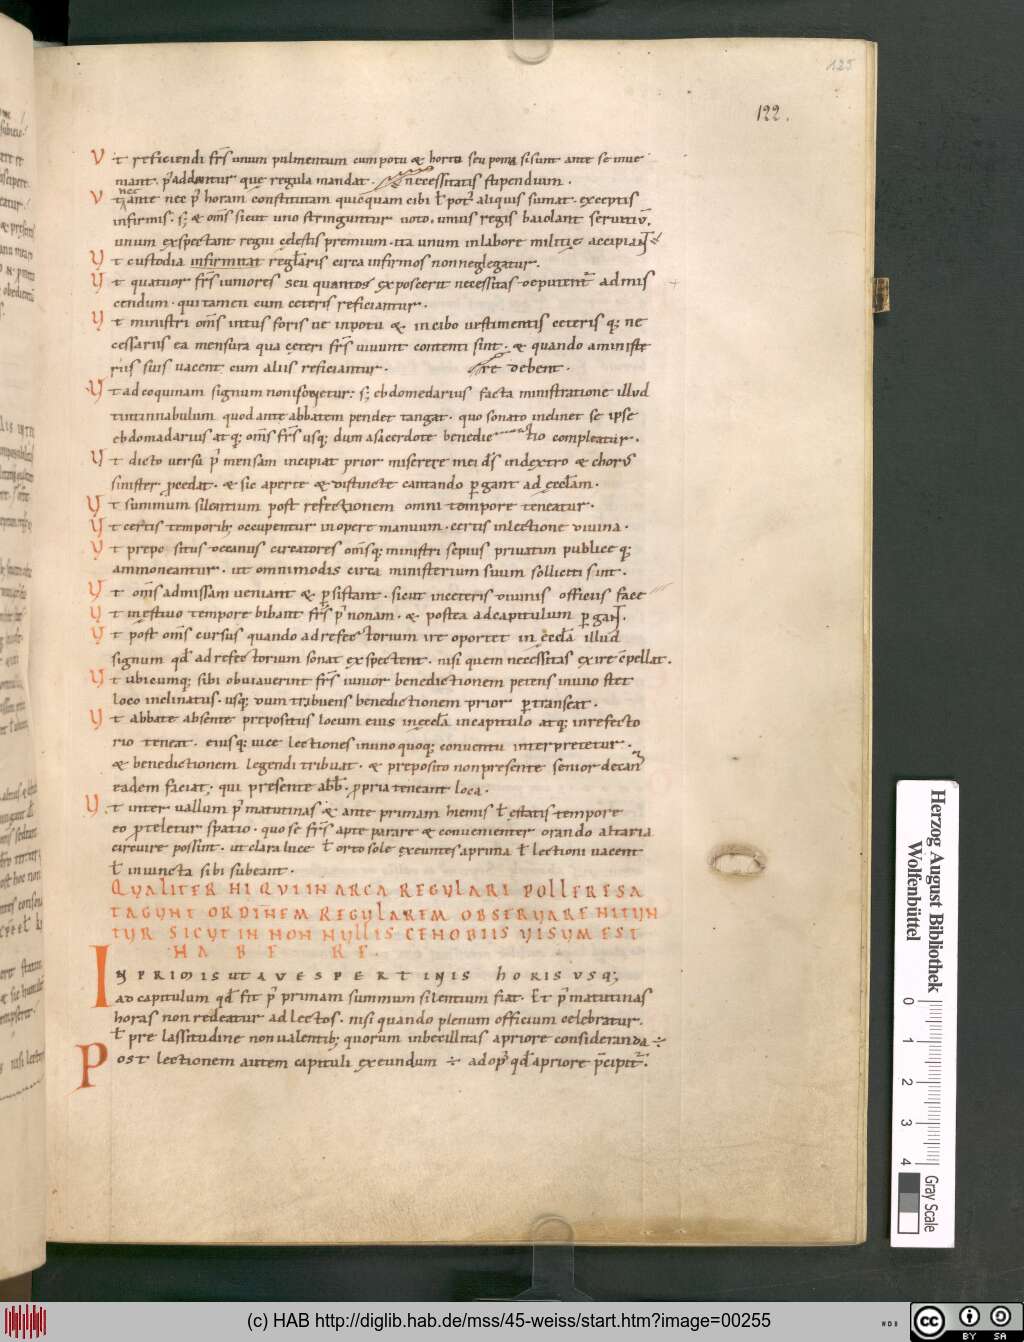 125
122.
Vt reficiendi frs̄ unum pulmentum cum potu & hortu seu poma si sunt ante se inue
niant. p̄ addantur que regula mandat. necessitatis stipendium.
Vt nec ante nec p̄ horam constitutam quicquam cibi ł pot⁹ aliquis sumat. exceptis
infirmis. s; & om̄s sicut uno stringuntur uoto. unius regis baiolant seruitiū.
unum exspectant regni cęlestis premium. ita unum in labore militię accipiant
Vt custodia infirmitat regłaris circa infirmos non neglegatur.
Vt quatuor frs̄ iuniores seu quantos exposcerit necessitas deputent̄ ad mis
cendum. qui tamen cum ceteris reficiantur.
Vt ministri om̄s intus foris ue in potu &. in cibo uestimentis ceteris q; ne
cessariis ea mensura qua ceteri frs̄ uiuunt contenti sint. & quando a ministe
riis suis uacent cum aliis reficiantur. re debent.
Vt ad coquinam signum non sonetur: s; ebdomedarius facta ministratione illud
tintinnabulum quod ante abbatem pendet tangat. quo sonato inclinet se ipse
ebdomadarius atq; om̄s frs̄ usq; dum a sacerdote benedictio compleatur.
Vt dicto uersu p̄ mensam incipiat prior miserere mei ds̄ in dextro & chorus
sinister p̄cedat. & sic aperte & distincte cantando p̱gant ad ęcclam̄.
Vt summum silentium post refectionem omni tempore teneatur.
Vt certis temporib; occupentur in opere manuum. certis in lectione diuina.
Vt prepo situs decanus circatores om̄sq; ministri sepius priuatim publice q;
ammoneantur. ut omnimodis circa ministerium suum solliciti sint.
Vt om̄s ad missam ueniant & p̱sistant. sicut in ceteris diuinis officiis face
Vt in ęstiuo tempore bibant frs̄ p̄ nonam. & postea ad capitulum p̱gant.
Vt post om̄s cursus quando ad refectorium ire oportet in ęccła illud
signum qđ ad refectorium sonat exspectent. nisi quem necessitas exire cōpellat.
Vt ubicumq; sibi obuiauerint frs̄ iunior benedictionem petens in uno stet
loco inclinatus. usq; dum tribuens benedictionem prior p̱transeat.
Vt abbate absente prepositus locum eius in ęccła in capitulo atq; in refecto
rio teneat. eiusq; uice lectiones in uno quoq; conuentu interpretetur.
& benedictionem legendi tribuat. & preposito non presente senior decan⁹
eadem faciat. qui presente abb̄. p̱pria teneant loca.
Vt inter uallum p̄ matutinas & ante primam hiemis ł ęstatis tempore
eo p̄teletur spatio. quo se frs̄ apte parare & conuenienter orando altaria
circuire possint. ut clara luce ł orto sole exeuntes a prima ł lectioni uacent
ł iniuncta sibi subeant.
QVALITER HI QVI IN ARCA REGVLARI POLLERE SA
TAGVNT ORDINEM REGVLAREM OBSERVARE NITVN
TVR SICVT IN NON NVLLIS CENOBIIS VISVM EST
HABERE.
IN PRIMIS UT A VESPERTINIS HORIS VSQ;
ad capitulum qđ fit p̄ primam summum silentium fiat. Et p̄ matutinas
horas non redeatur ad lectos. nisi quando plenum officium celebratur.
ł pre lassitudine non ualentib; quorum inbecillitas a priore consideranda ÷
Post lectionem autem capituli exeundum ÷ ad op⁹ qđ a priore p̄cipit̄.
Herzog August Bibliothek
Wolfenbüttel
0 1 2 3 4
Gray Scale
(c) HAB http://diglib.hab.de/mss/45-weiss/start.htm?image=00255
cc BY SA